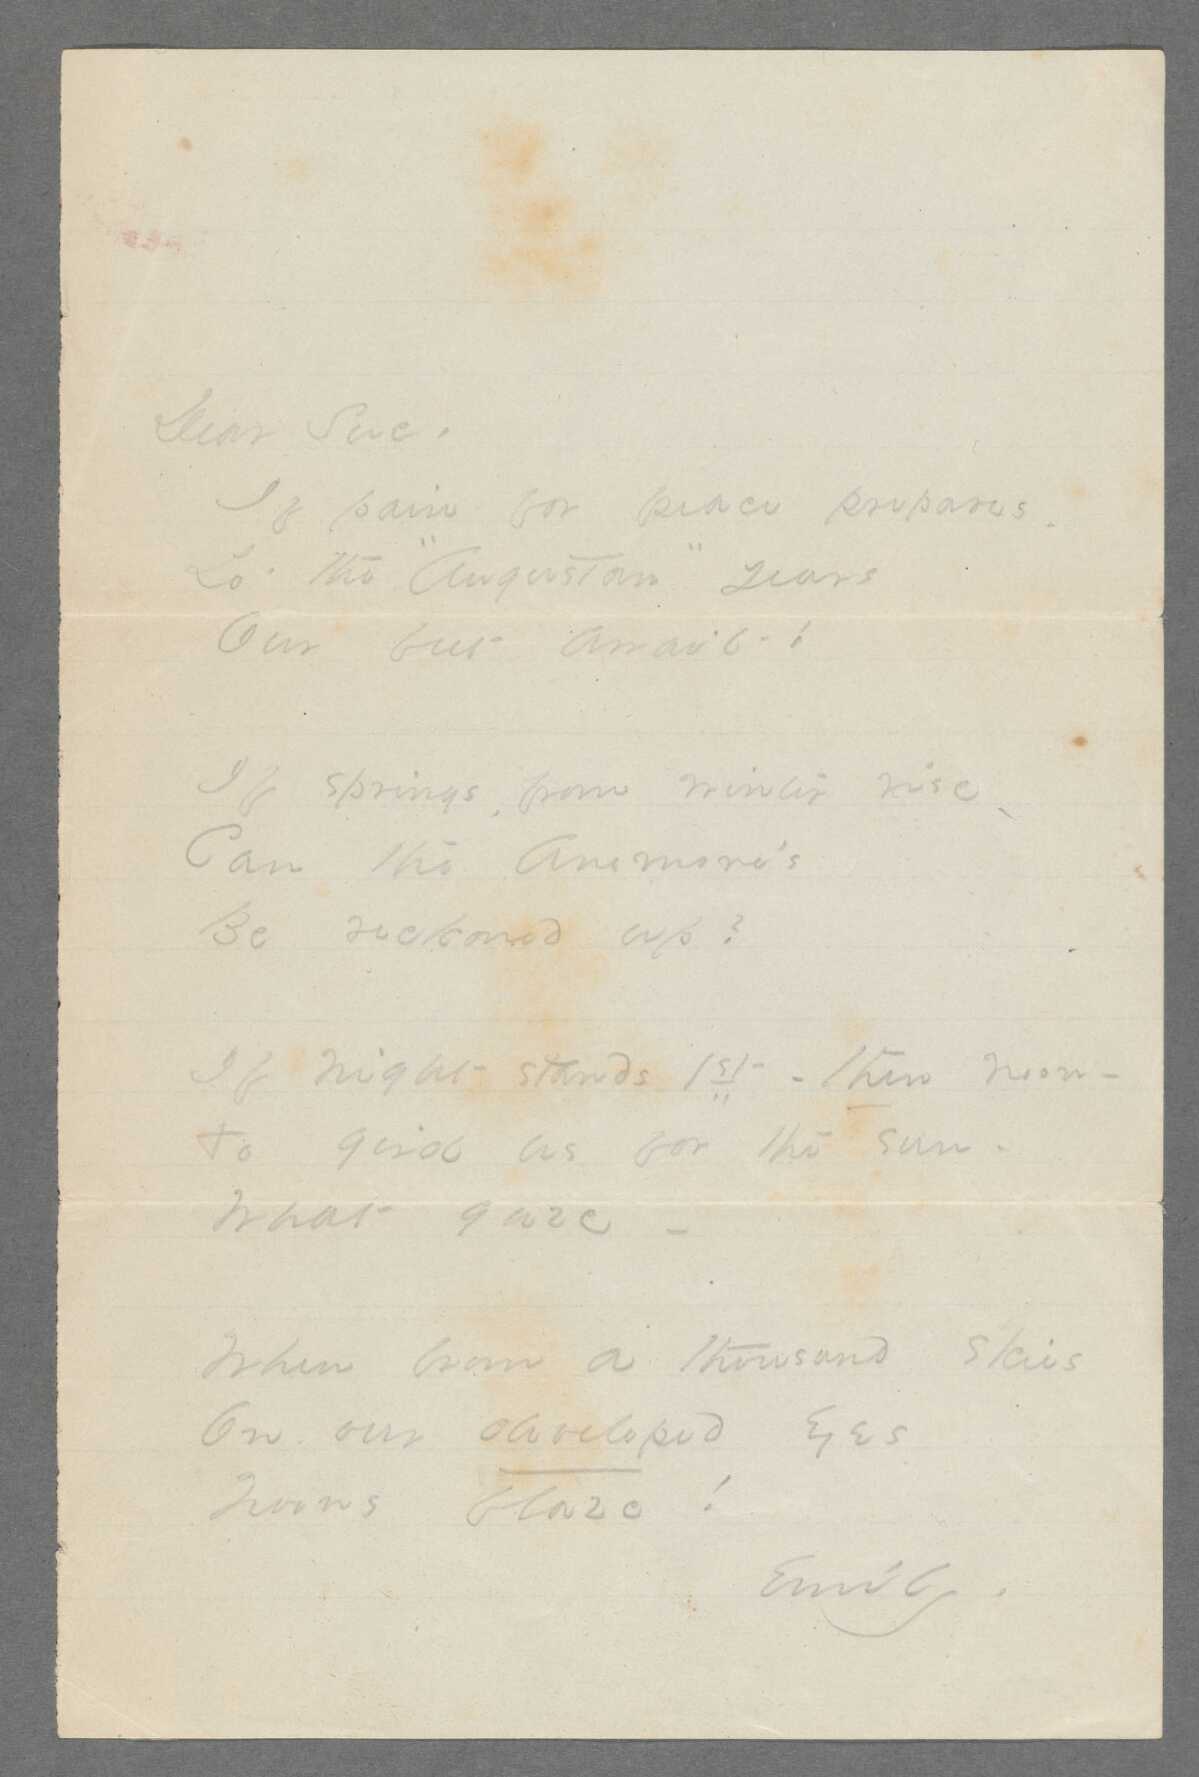 Dear Sue.
If pain for peace prepares -
Lo. the "Augustan" years
Our feet await - !
If springs, from winter rise,
Can the Anemone's
Be reckoned up?
If night stands 1st - then noon -
To gird us for the sun -
What gaze -
When from a thousand skies
On our developed Eyes
Noons blaze !
Emily.